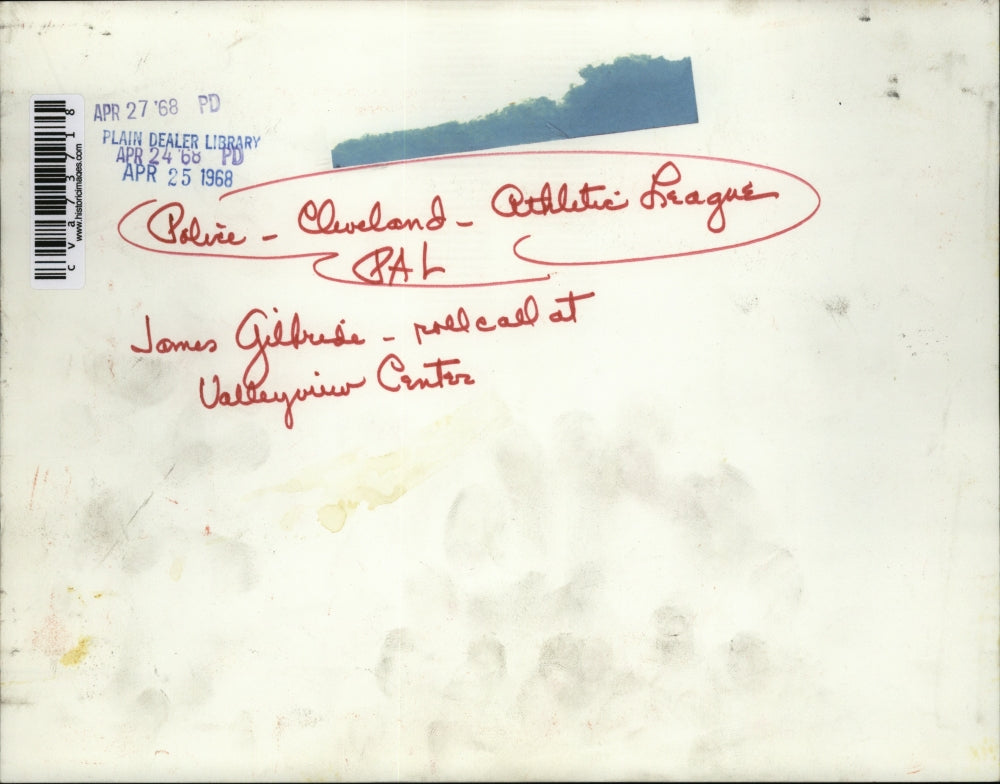 APR 27 '68 PD
PLAIN DEALER LIBRARY
APR 24 '68 PD
APR 25 1968
cva73718
www.historicimages.com
Police - Cleveland - Athletic League
PAL
James Gilbride - roll call at
Valleyview Center